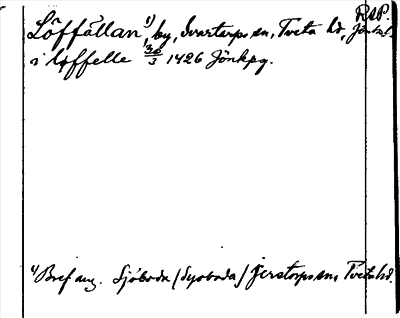 RAP.
Löffällan ¹⁾, by, Svartorps sn, Tveta hd, Jönk.l.
i løffelle 30/3 1426 Jönkpg.
¹⁾ Bref ang. Sjöboda (Syoboda) Jerstorps sn, Tveta hd.